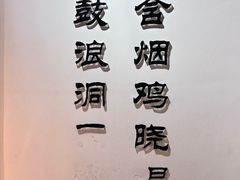 含烟鸡晓
鼓浪洞一